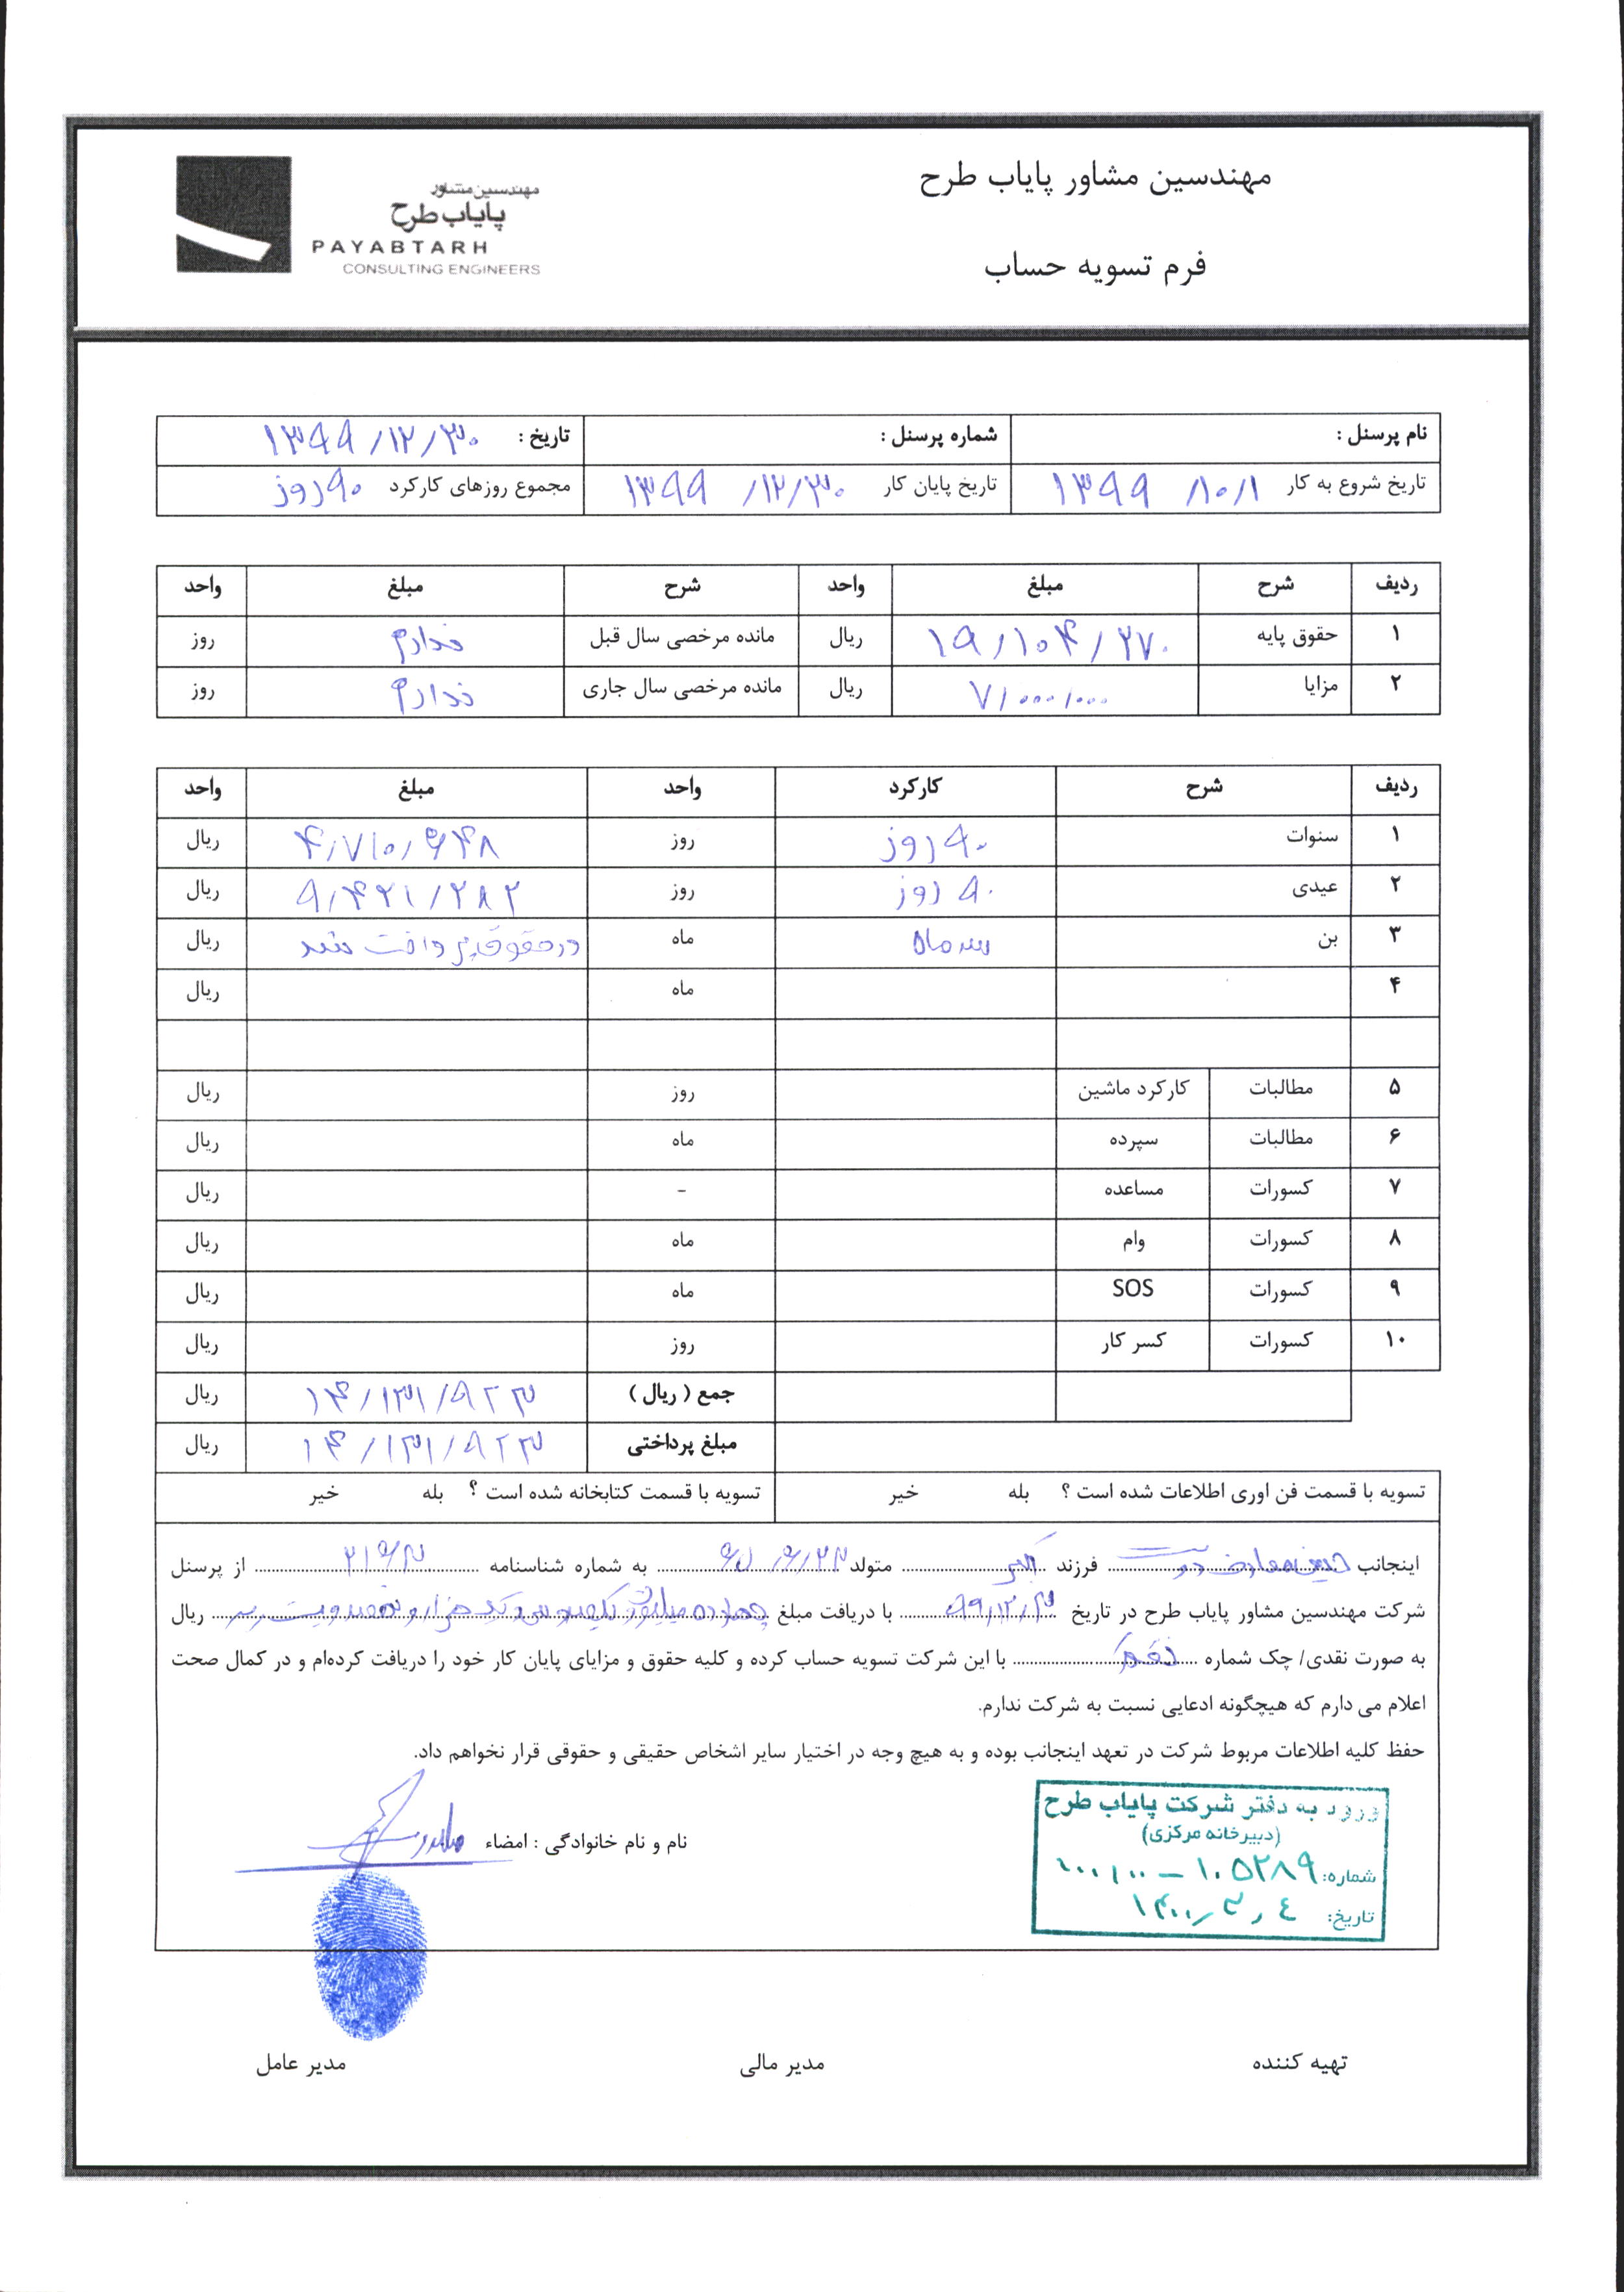 مهندسین مشاور پایاب طرح
مهندسین مشاور
پایاب طرح
PAYABTARH
CONSULTING ENGINEERS
فرم تسویه حساب
نام پرسنل : شماره پرسنل : تاریخ : ۱۳۹۹/۱۲/۳۰
تاریخ شروع به کار ۱۳۹۹/۱۰/۱ تاریخ پایان کار ۱۳۹۹/۱۲/۳۰ مجموع روزهای کارکرد ۹۰ روز
ردیف شرح مبلغ واحد شرح مبلغ واحد
۱ حقوق پایه ۱۹/۱۰۴/۲۷۰ ریال مانده مرخصی سال قبل ندارم روز
۲ مزایا ۷/۰۰۰/۰۰۰ ریال مانده مرخصی سال جاری ندارم روز
ردیف شرح کارکرد واحد مبلغ واحد
۱ سنوات ۹۰ روز روز ۴/۷۱۰/۶۴۸ ریال
۲ عیدی ۹۰ روز روز ۹/۴۲۱/۲۸۲ ریال
۳ بن سه ماه ماه در حقوق پرداخت شد ریال
۴ ماه ریال
۵ مطالبات کارکرد ماشین روز ریال
۶ مطالبات سپرده ماه ریال
۷ کسورات مساعده - ریال
۸ کسورات وام ماه ریال
۹ کسورات SOS ماه ریال
۱۰ کسورات کسر کار روز ریال
جمع ( ریال ) ۱۴/۱۳۱/۹۲۳ ریال
مبلغ پرداختی ۱۴/۱۳۱/۹۲۳ ریال
تسویه با قسمت فن اوری اطلاعات شده است ؟ بله خیر تسویه با قسمت کتابخانه شده است ؟ بله خیر
اینجانب فرزند اکبر متولد به شماره شناسنامه ۲۱۶۳ از پرسنل
شرکت مهندسین مشاور پایاب طرح در تاریخ ۹۹/۱۲/۳۰ با دریافت مبلغ چهارده میلیون یکصد و سی و یک هزار و نهصد و بیست و سه ریال
به صورت نقدی/ چک شماره با این شرکت تسویه حساب کرده و کلیه حقوق و مزایای پایان کار خود را دریافت کرده‌ام و در کمال صحت
اعلام می دارم که هیچگونه ادعایی نسبت به شرکت ندارم.
حفظ کلیه اطلاعات مربوط شرکت در تعهد اینجانب بوده و به هیچ وجه در اختیار سایر اشخاص حقیقی و حقوقی قرار نخواهم داد.
ورود به دفتر شرکت پایاب طرح
(دبیرخانه مرکزی)
نام و نام خانوادگی : امضاء
شماره: ۱۰۵۲۸۹ – ۱۰۰۱۰۰
تاریخ: ۱۴۰۰/۳/۴
تهیه کننده مدیر مالی مدیر عامل